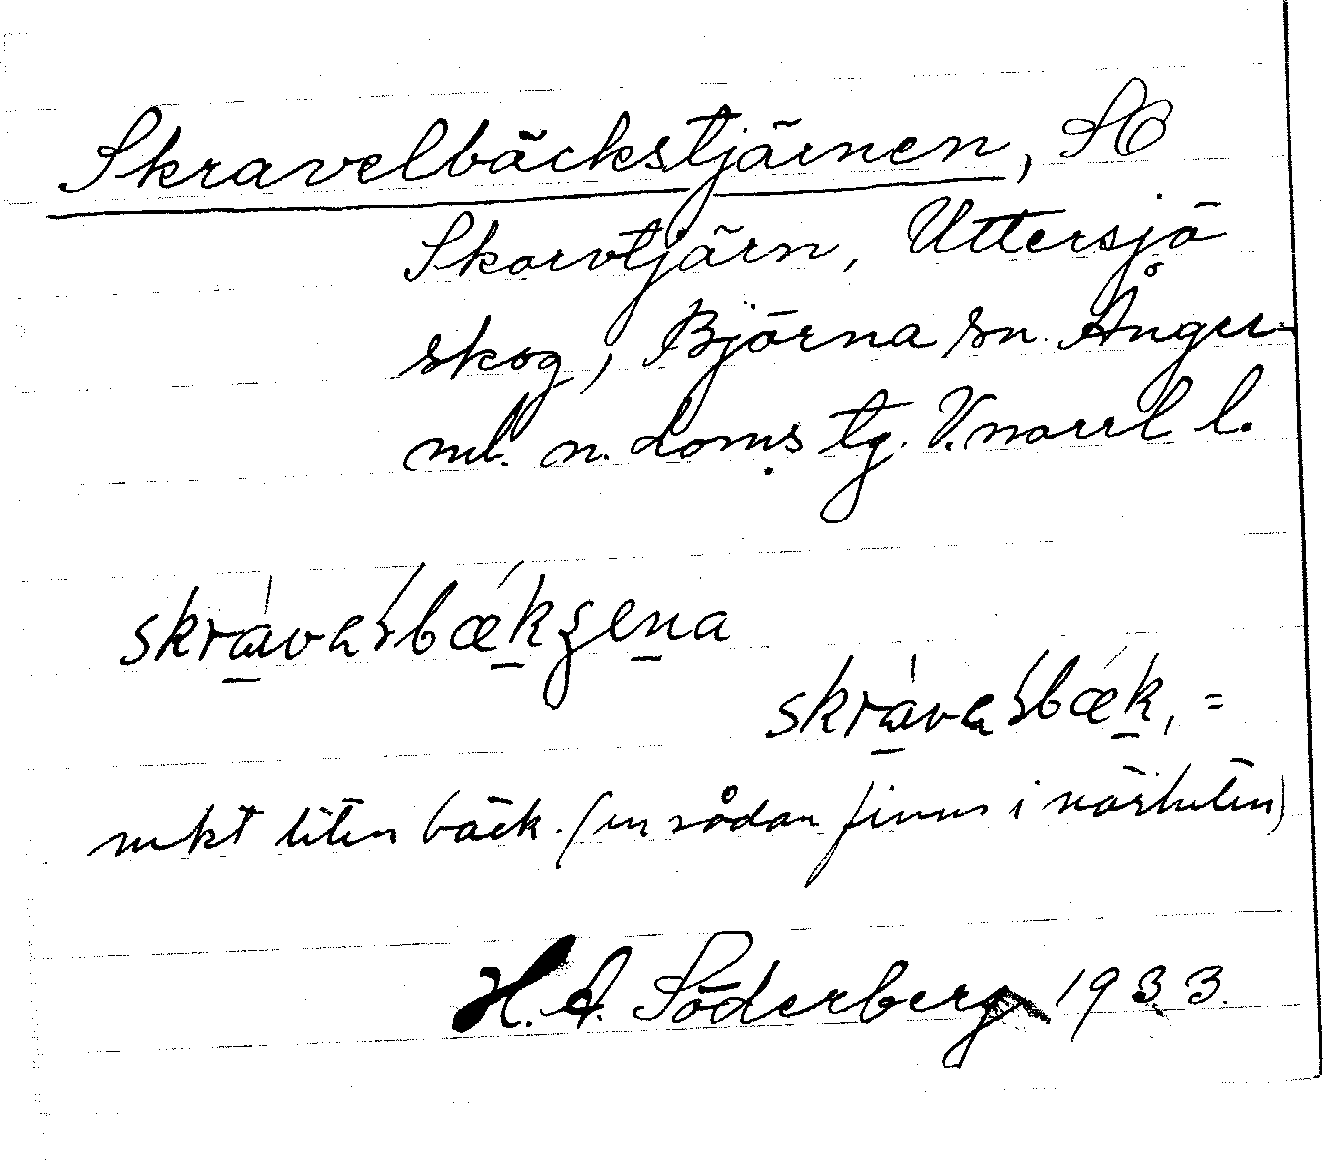 Skravelbäckstjärnen, SO
Skorvtjärn, Uttersjö
skog, Björna sn. Ånger-
ml. n. doms tg. V.norrl l.
skrávaɫbækʂena
skrávaɫbæk, =
mkt liten bäck. (en sådan finns i närheten)
H. A. Söderberg 1933.